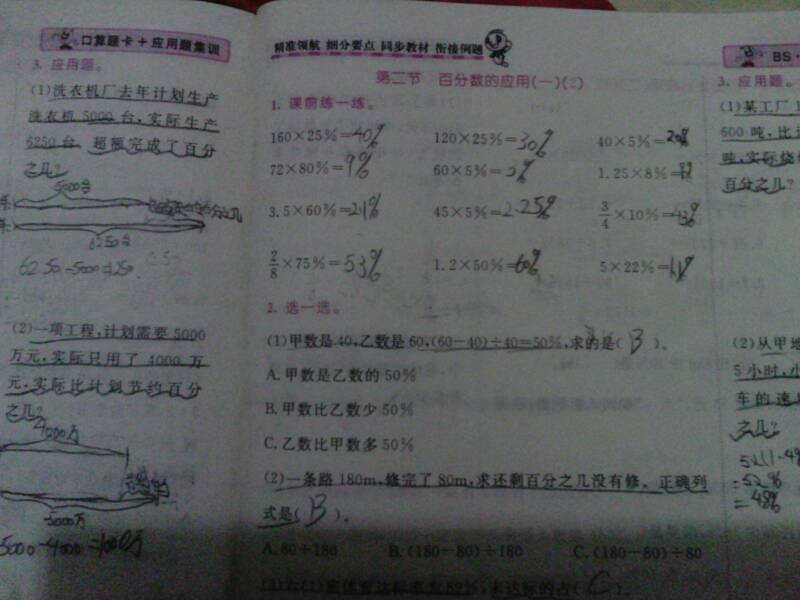 口算题卡+应用题集训
3. 应用题。
(1)洗衣机厂去年计划生产
洗衣机 5000 台,实际生产
6250 台, 超额完成了百分
之几?
5000台
6250台
6250-5000=1250
(2)一项工程,计划需要 5000
万元,实际只用了 4000 万
元,实际比计划节约百分
之几?
4000万
5000万
5000-4000=1000万
精准领航 细分要点 同步教材 衔接例题
第二节 百分数的应用(一)(2)
1. 课前练一练。
160×25%=40% 120×25%=30% 40×5%=20%
72×80%=9% 60×5%=3% 1.25×8%=
3.5×60%=2.1% 45×5%=2.25% 3/4×10%=
2/8×75%=53% 1.2×50%=60% 5×22%=
2. 选一选。
(1)甲数是 40,乙数是 60,(60-40)÷40=50%,求的是( B )。
A. 甲数是乙数的 50%
B. 甲数比乙数少 50%
C. 乙数比甲数多 50%
(2)一条路 180m,修完了 80m,求还剩百分之几没有修。正确列
式是( B )。
A. 80÷180 B. (180-80)÷180 C. (180-80)÷80
(3)六(1)班体育达标率为 89%,未达标的占( C )。
BS·
3. 应用题。
(1)某工厂
600 吨,比
吨,实际烧
百分之几?
(2)从甲地
5 小时,小
车的速
之几?
=52%
=48%